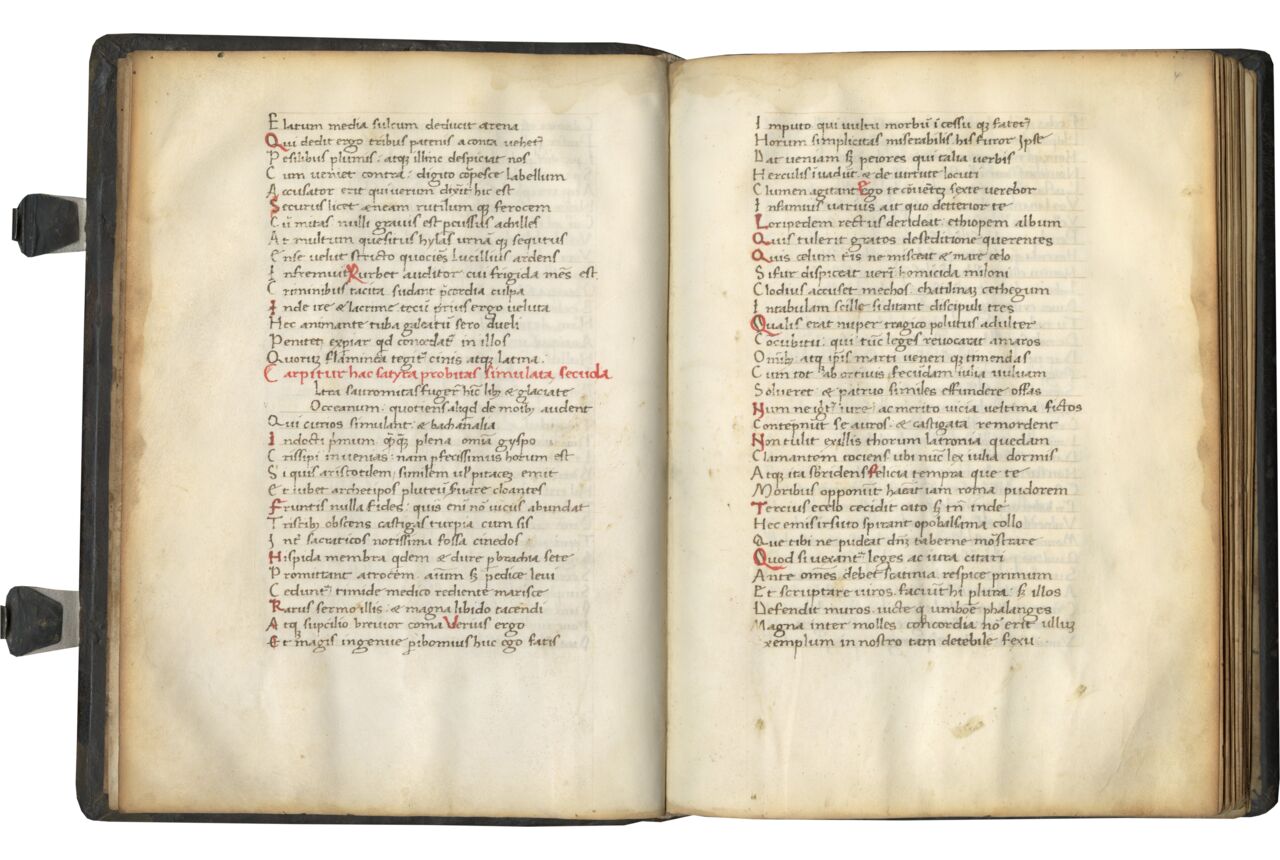 E latum media sulcum deducit arena
Qui dedit ergo tribus patruis aconta vehet᷑
Pesilibus plumis: atq; illinc despiciat nos
Cum veniet contra: digito cōpesce labellum
Accusator erit qui verum dixit hic est
Securus licet aeneam rutilum q; ferocem
Cū mitas nulli gravis est pcussus achilles
At multum quesitus hylas urna q; sequtus
Ense velut stricto quociēs Lucillius ardens
Infremuit Rubet auditor cui frigida mēs est
Criminibus tacita sudant p̄cordia culpa
Inde ire & lacrime tecū prius ergo veluta
Hec animante tuba galeatū sero dueli
Penitet expiar qd concedat᷑ in illos
Quorum flaminea tegit᷑ cinis atq; latina.
Carpitur hac satyra probitas simulata secūda
Ltra sauromitas fuger᷑ hīc lib; & glaciale
Oceanum: quotiens aliqd de morib; audent
Qui curios simulant: & bachanalia
Indocti primum q̄q; plena omīa gypso
Crissipi invenias: nam pfectissimus horum est
Si quis aristotelem similem vel pitacem emit
Et iubet archetipos pluteū fuare cloantes
Fruntis nulla fides: quis eni nō vicus abundat
Tristib; obscens castigas turpia cum sis
Int᷑ sacraticos notissima fossa cinedos
Hispida membra qdem & dure p brachia sete
Promittant atrocem aīum s; p̄edice levi
Cedunt᷑ timide medico rediente marisce
Rarus sermo illis: & magna libido tacendi
Atq; supcilio brevior coma Verius ergo
Et magis ingenue pibomius huc ego fatis
Imputo qui vultu morbū īcessu q; fatet᷑
Horum simplicitas miserabilis his furor ipse
Dat veniam s; peiores qui talia verbis
Herculis ivadūt & de virtute locuti
Clunem agitant Ego te cōvētē sexte verebor
Infamius varius ait quo deterior te
Loripedem rectus derideat: ethiopem album
Quis tulerit gratos de seditione querentes
Quis celum t᷑is ne misceat & mare celo
Si fur dispiceat verri homicida miloni
Clodius accuset mechos: chatilina cethegum
In tabulam scille si ditant discipuli tres
Qualis erat nuper tragico polutus adulter
Cōcubitu: qui tūc leges revocarat amaros
Omīb; atq; ip̄is marti veneri q; timendas
Cum tot abortivis fecūdam iulia vulvam
Solveret & patruo similes effundere offas
Num ne igit᷑ iure: ac merito vicia ultima fictos
Contepnūt scauros: & castigata remordent
Non tulit exillis thorum latronia quedam
Clamantem tociens ubi nūc lex iulia dormis
Atq; ita sbridens felicia tempra que te
Moribus opponūt haēat iam roma pudorem
Tercius e celo cecidit cato s; tn̄ inde
Hec emis irsuto spirant opobalsima collo
Que tibi ne pudeat dn̄z taberne mōstrare
Quod si vexant᷑ leges ac iura citari
Ante omēs debet scatinia respice primum
Et scruptare viros. faciūt hi plura s; illos
Defendit muros. iūcte q; umbōe phalanges
Magna inter molles concordia nō erit ullum
exemplum in nostro tam detebile sexu.